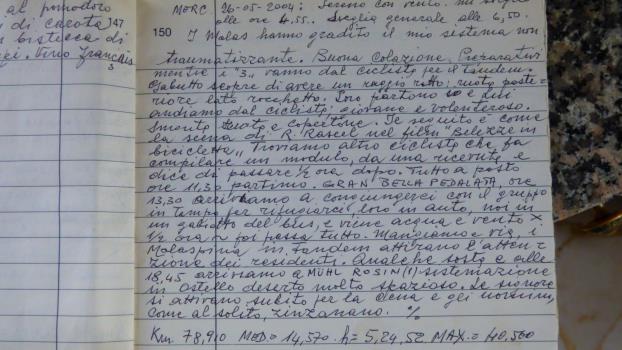 al pomodoro
di carota 147
bistecca di
Vino francais
3
MERC 26-05-2004: Sereno con vento. mi sveglio
alle ore 4.55. Sveglia generale alle 6,50.
150 I Malas hanno gradito il mio sistema non
traumatizzante. Buona Colazione. Preparativi
mentre i "3" vanno dal ciclista per il tandem.
Gabutto scopre di avere un raggio rotto: ruota poste-
riore lato rocchetto. Loro partono e noi
andiamo dal ciclista: giovane e volenteroso.
Smonta ruota e copertone. Il seguito è come
la scena di R. Rascel nel film "Belezze in
bicicletta". Troviamo altro ciclista che fa
compilare un modulo, da una ricevuta e
dice di passare ½ ora dopo. Tutto a posto
ore 11,30 partimo. GRAN BELLA PEDALATA, ore
13,30 arriviamo a congiungerci con il gruppo
in tempo per rifugiarci, loro in auto, noi in
un gabiotto del bus, e viene acqua e vento x
½ ora e poi passa tutto. Mangiamo e via, i
Malaspina in tandem attirano l'atten-
zione dei residenti. Qualche sosta e alle
18,45 arriviamo a MÜHL ROSIN (1) sistemazione
in Ostello deserto molto spazioso. Le signore
si attivano subito per la Cena e gli uomini,
come al solito, zinzanano. %
Km. 78,910 MED = 14,570. h = 5,24,52 MAX. = 40,500